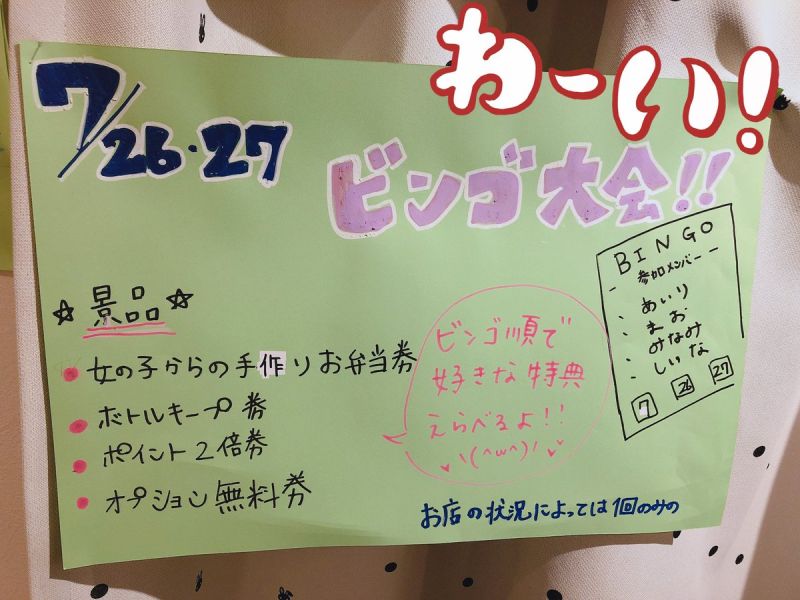 わーい!
7/26・27
ビンゴ大会!!
BINGO
参加メンバー
・あいり
・まお
・みなみ
・しいな
7 26 27
☆景品☆
・女の子からの手作りお弁当券
・ボトルキープ券
・ポイント2倍券
・オプション無料券
ビンゴ順で
好きな特典
えらべるよ!!
\(^ω^)/
お店の状況によっては1回のみの